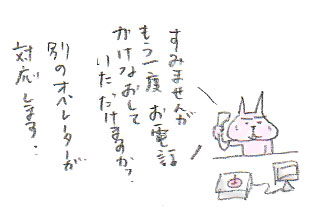 すみませんが
もう一度 お電話
かけなおして
いただけますのか?
別のオペレーターが
対応します.